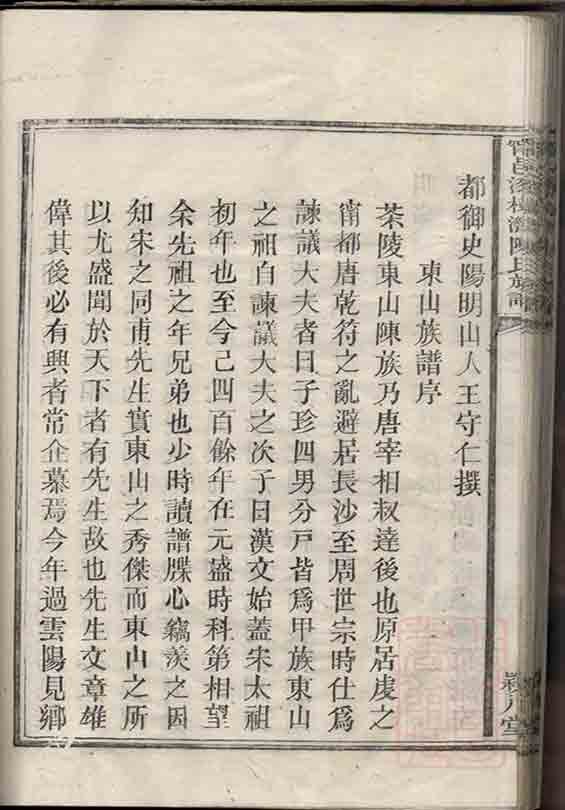 都御史陽明山人王守仁撰
東山族譜序
茶陵東山陳族乃唐宰相叔達後也原居虔之
甯都唐乾符之亂避居長沙至周世宗時仕爲
諫議大夫者曰子珍四男分戸皆爲甲族東山
之祖自諫議大夫之次子曰漢文始蓋宋太祖
初年也至今己四百餘年在元盛時科第相望
余先祖之年兄弟也少時讀譜牒心竊羨之因
知宋之同甫先生實東山之秀傑而東山之所
以尤盛聞於天下者有先生故也先生文章雄
偉其後必有興者常企慕焉今年過雲陽見鄉
陳氏族譜
潁川堂